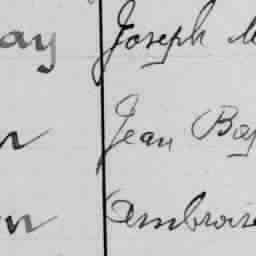 ay Joseph
Jean Bap
Ambroise